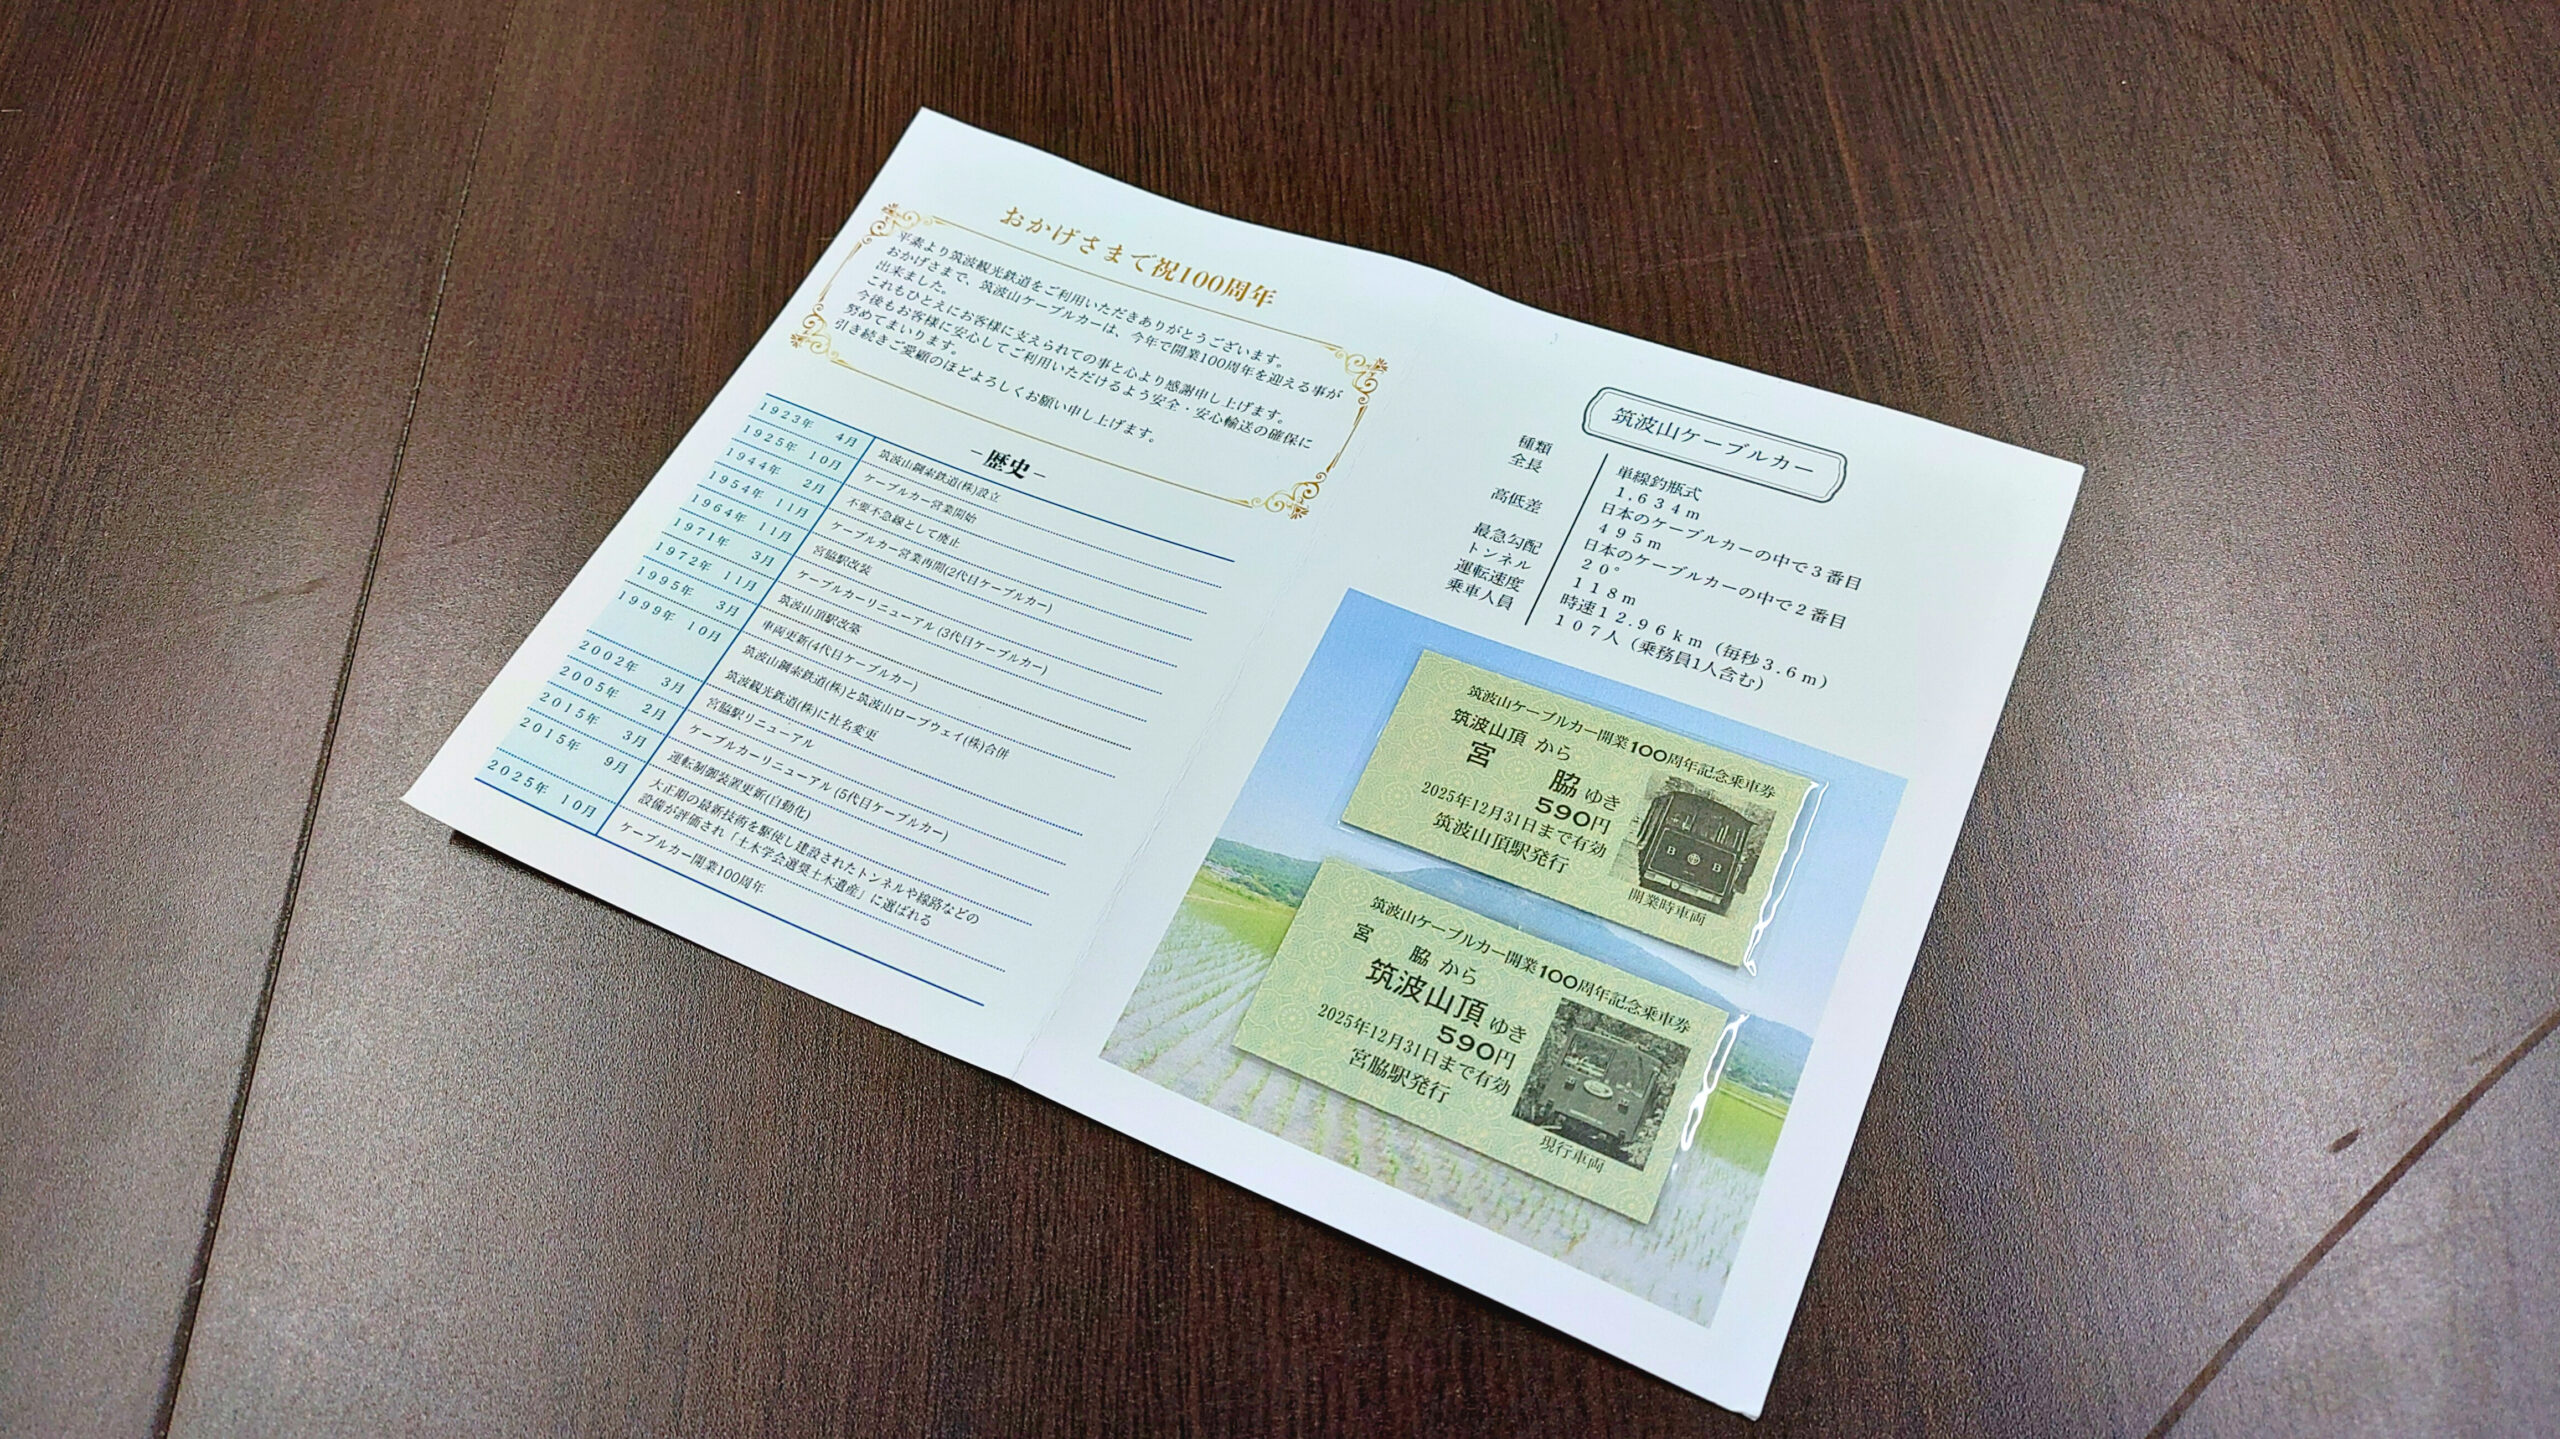 おかげさまで祝100周年
平素より筑波観光鉄道をご利用いただきありがとうございます。
おかげさまで、筑波山ケーブルカーは、今年で開業100周年を迎える事が
出来ました。
これもひとえにお客様に支えられての事と心より感謝申し上げます。
今後もお客様に安心してご利用いただけるよう安全・安心輸送の確保に
努めてまいります。
引き続きご愛顧のほどよろしくお願い申し上げます。
－歴史－
1923年 4月 筑波山鋼索鉄道(株)設立
1925年 10月 ケーブルカー営業開始
1944年 2月 不要不急線として廃止
1954年 11月 ケーブルカー営業再開(2代目ケーブルカー)
1964年 11月 宮脇駅改装
1971年 3月 ケーブルカーリニューアル (3代目ケーブルカー)
1972年 11月 筑波山頂駅改築
1995年 3月 車両更新(4代目ケーブルカー)
1999年 10月 筑波山鋼索鉄道(株)と筑波山ロープウェイ(株)合併
筑波観光鉄道(株)に社名変更
2002年 3月 宮脇駅リニューアル
2005年 2月 ケーブルカーリニューアル (5代目ケーブルカー)
2015年 3月 運転制御装置更新(自動化)
2015年 9月 大正期の最新技術を駆使し建設されたトンネルや線路などの
設備が評価され「土木学会選奨土木遺産」に選ばれる
2025年 10月 ケーブルカー開業100周年
筑波山ケーブルカー
種類 単線釣瓶式
全長 1,634m
日本のケーブルカーの中で3番目
高低差 495m
日本のケーブルカーの中で2番目
最急勾配 20°
トンネル 118m
運転速度 時速12.96km（毎秒3.6m）
乗車人員 107人（乗務員1人含む）
筑波山ケーブルカー開業100周年記念乗車券
筑波山頂 から
宮 脇 ゆき
590円
2025年12月31日まで有効
筑波山頂駅発行
B B
開業時車両
筑波山ケーブルカー開業100周年記念乗車券
宮 脇 から
筑波山頂 ゆき
590円
2025年12月31日まで有効
宮脇駅発行
現行車両